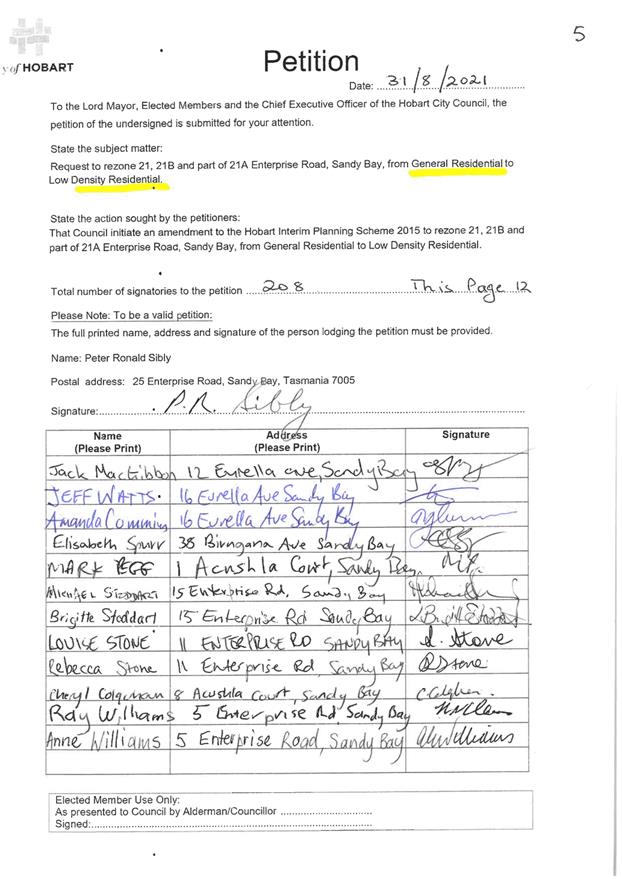 5
y of HOBART
Petition
Date: 31/8/2021
To the Lord Mayor, Elected Members and the Chief Executive Officer of the Hobart City Council, the
petition of the undersigned is submitted for your attention.
State the subject matter:
Request to rezone 21, 21B and part of 21A Enterprise Road, Sandy Bay, from General Residential to
Low Density Residential.
State the action sought by the petitioners:
That Council initiate an amendment to the Hobart Interim Planning Scheme 2015 to rezone 21, 21B and
part of 21A Enterprise Road, Sandy Bay, from General Residential to Low Density Residential.
Total number of signatories to the petition 208 This Page 12
Please Note: To be a valid petition:
The full printed name, address and signature of the person lodging the petition must be provided.
Name: Peter Ronald Sibly
Postal address: 25 Enterprise Road, Sandy Bay, Tasmania 7005
Signature: P.R. Sibly
Name Address Signature
(Please Print) (Please Print)
Jack MacGibbon 12 Eurella ave, Sandy Bay
JEFF WATTS. 16 Eurella Ave Sandy Bay
Amanda Cummins 16 Eurella Ave Sandy Bay
Elisabeth Spurr 38 Ave Sandy Bay
MARK 1 Acushla Court, Sandy Bay,
15 Enterprise Rd, Sandy Bay
Brigitte Stoddart 15 Enterprise Rd Sandy Bay
LOUISE STONE 11 ENTERPRISE RD SANDY BAY L. Stone
Rebecca Stone 11 Enterprise Rd, Sandy Bay RStone
Cheryl 8 Acushla Court, Sandy Bay
Ray Williams 5 Enterprise Rd, Sandy Bay
Anne Williams 5 Enterprise Road, Sandy Bay Williams
Elected Member Use Only:
As presented to Council by Alderman/Councillor
Signed: